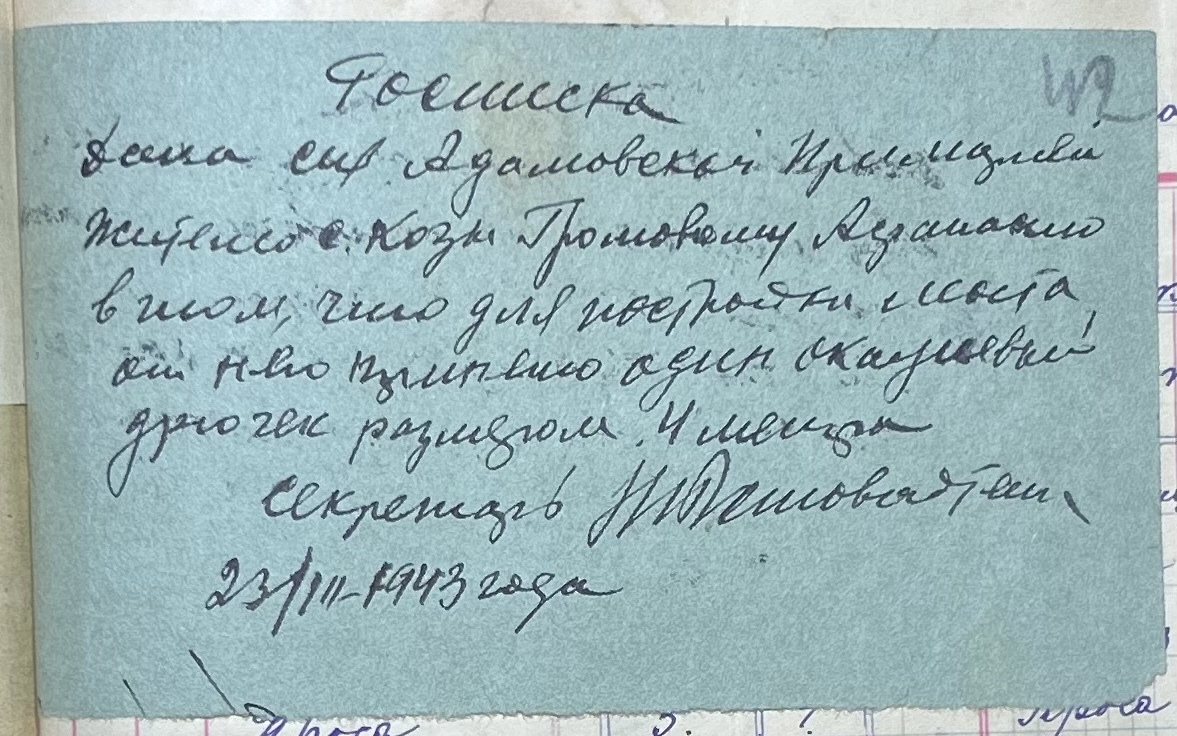 Росписка
42
Дана сия Адамовской Примарией
жителю с. Козы Громовому Афанасию
в том, что для постройки моста
от него принято один акациевый
дрючек размером 4 метра
Секретарь
23/III-1943 года